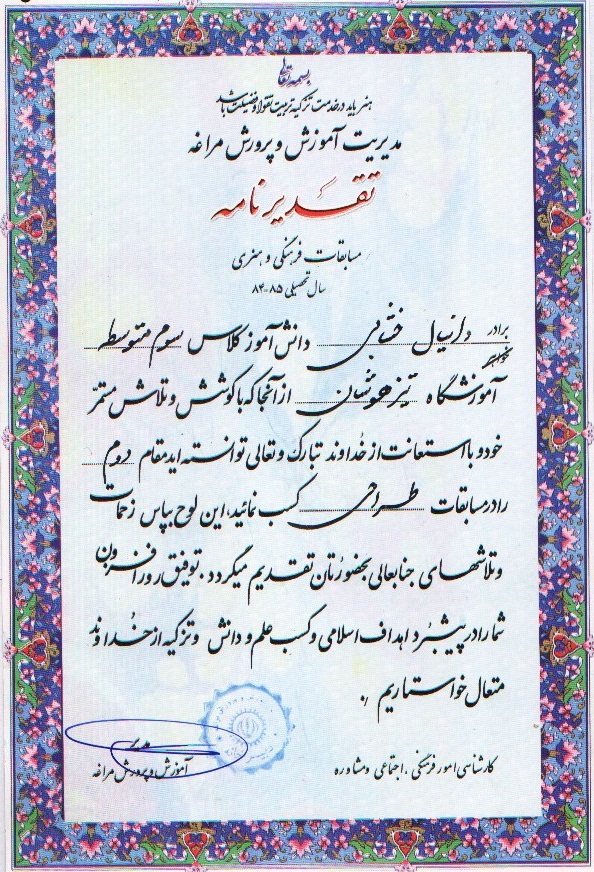 بسمه تعالی
هنر باید در خدمت تزکیه تربیت تقوا و فضیلت باشد
مدیریت آموزش و پرورش مراغه
تقدیرنامه
مسابقات فرهنگی و هنری
سال تحصیلی ۸۵-۸۴
برادر
خواهر
دانیال ختابی دانش آموز کلاس سوم متوسطه
آموزشگاه تیزهوشان از آنجا که با کوشش و تلاش مستمر
خود و با استعانت از خداوند تبارک و تعالی توانسته اید مقام دوم
را در مسابقات طراحی کسب نمائید، این لوح بپاس زحمات
و تلاشهای جنابعالی بحضورتان تقدیم میگردد. توفیق روز افزون
شما را در پیشبرد اهداف اسلامی و کسب علم و دانش و تزکیه از خداوند
متعال خواستاریم.
کارشناسی امور فرهنگی، اجتماعی و مشاوره
مدیر
آموزش و پرورش مراغه